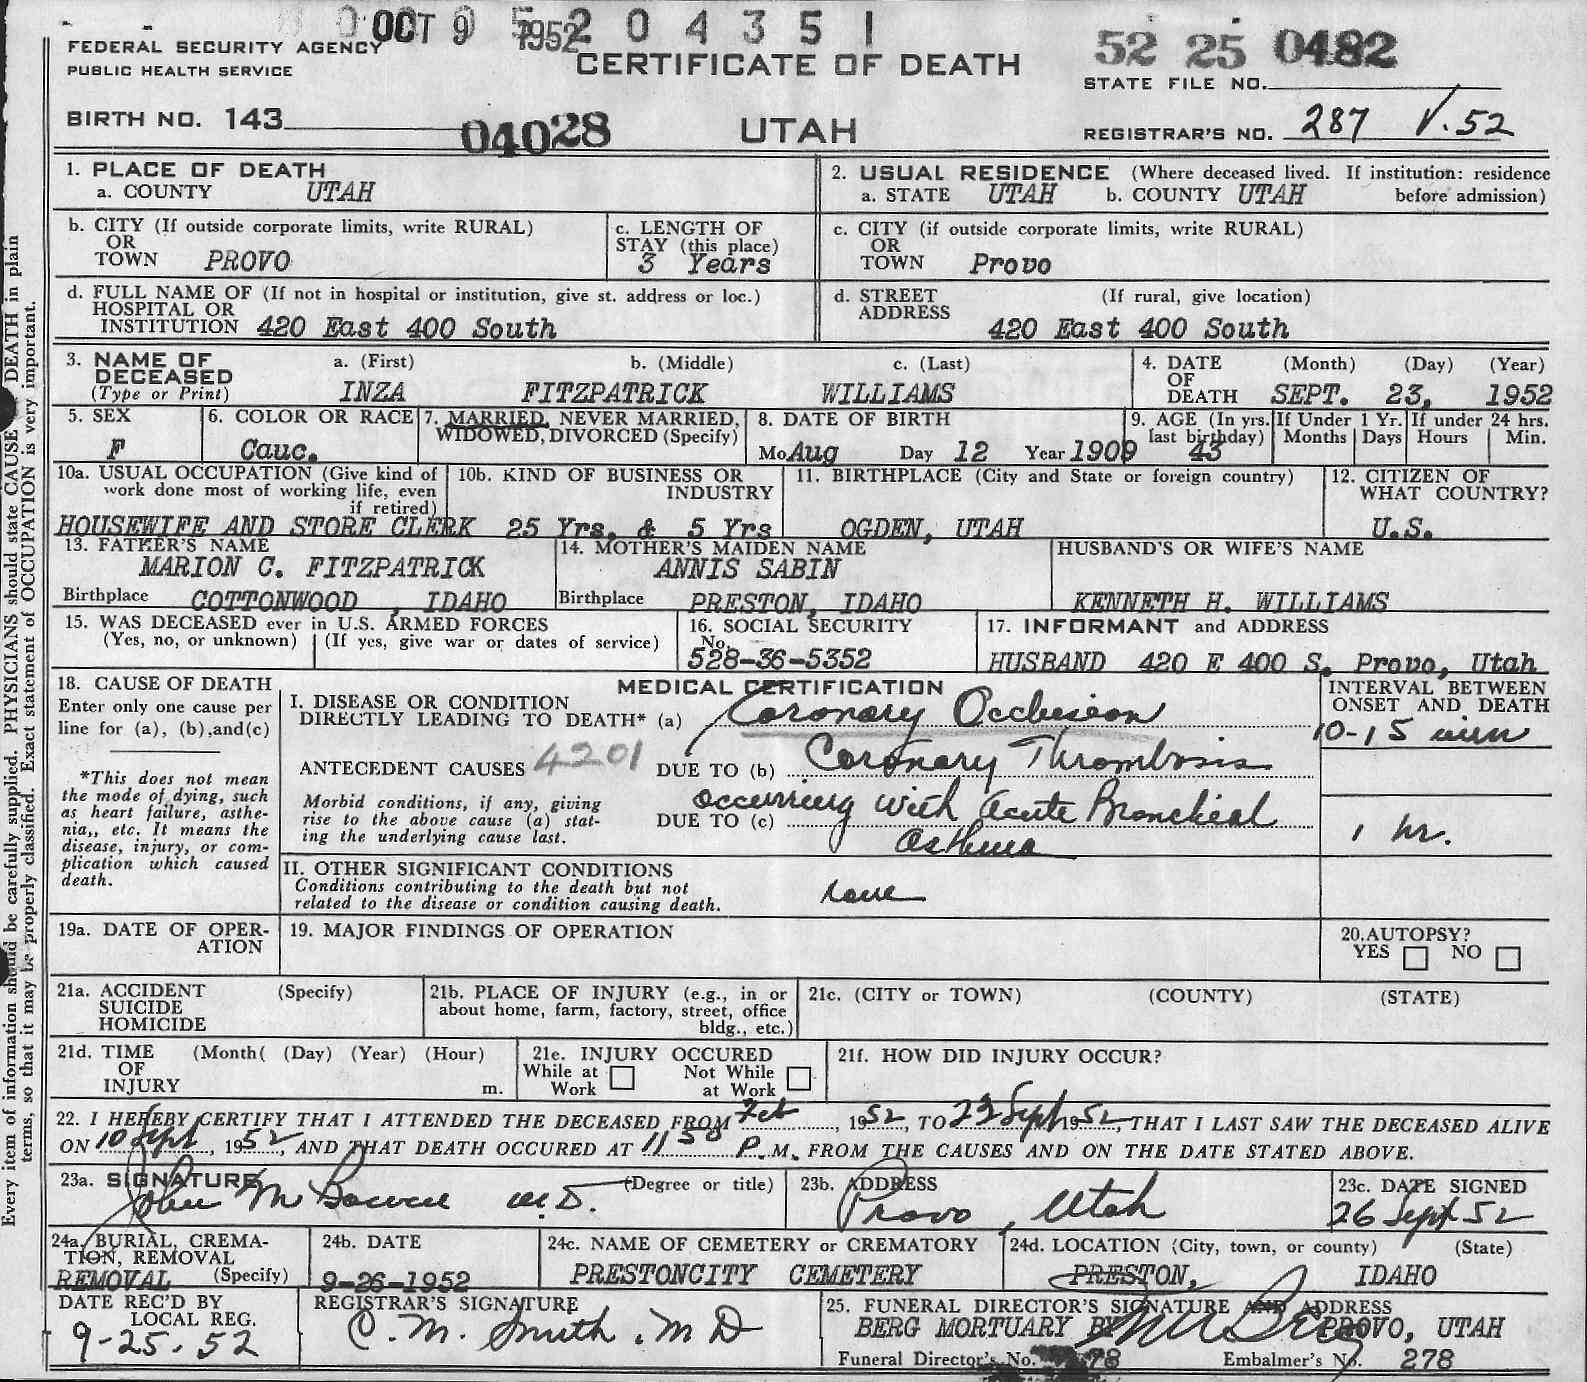 OCT 9 1952
5 2 0 4 3 5 1
52 25 0482
FEDERAL SECURITY AGENCY
PUBLIC HEALTH SERVICE
CERTIFICATE OF DEATH
STATE FILE NO.
BIRTH NO. 143
04028
UTAH
REGISTRAR'S NO. 287 V.52
1. PLACE OF DEATH
a. COUNTY UTAH
2. USUAL RESIDENCE (Where deceased lived. If institution: residence
a. STATE UTAH b. COUNTY UTAH before admission)
b. CITY (If outside corporate limits, write RURAL)
OR
TOWN PROVO
c. LENGTH OF
STAY (this place)
3 Years
c. CITY (if outside corporate limits, write RURAL)
OR
TOWN Provo
d. FULL NAME OF (If not in hospital or institution, give st. address or loc.)
HOSPITAL OR
INSTITUTION 420 East 400 South
d. STREET (If rural, give location)
ADDRESS
420 East 400 South
3. NAME OF a. (First) b. (Middle) c. (Last)
DECEASED
(Type or Print) INZA FITZPATRICK WILLIAMS
4. DATE (Month) (Day) (Year)
OF
DEATH SEPT. 23, 1952
5. SEX
F
6. COLOR OR RACE
Cauc.
7. MARRIED, NEVER MARRIED,
WIDOWED, DIVORCED (Specify)
8. DATE OF BIRTH
Mo Aug Day 12 Year 1909
9. AGE (In yrs.
last birthday)
43
If Under 1 Yr.
Months Days
If under 24 hrs.
Hours Min.
10a. USUAL OCCUPATION (Give kind of
work done most of working life, even
if retired)
HOUSEWIFE AND STORE CLERK
10b. KIND OF BUSINESS OR
INDUSTRY
25 Yrs. & 5 Yrs
11. BIRTHPLACE (City and State or foreign country)
OGDEN, UTAH
12. CITIZEN OF
WHAT COUNTRY?
U.S.
13. FATHER'S NAME
MARION C. FITZPATRICK
Birthplace COTTONWOOD , IDAHO
14. MOTHER'S MAIDEN NAME
ANNIS SABIN
Birthplace PRESTON, IDAHO
HUSBAND'S OR WIFE'S NAME
KENNETH H. WILLIAMS
15. WAS DECEASED ever in U.S. ARMED FORCES
(Yes, no, or unknown) (If yes, give war or dates of service)
16. SOCIAL SECURITY
No.
528-36-5352
17. INFORMANT and ADDRESS
HUSBAND 420 E 400 S. Provo, Utah
18. CAUSE OF DEATH
Enter only one cause per
line for (a), (b),and(c)
*This does not mean
the mode of dying, such
as heart failure, asthe-
nia,, etc. It means the
disease, injury, or com-
plication which caused
death.
MEDICAL CERTIFICATION
I. DISEASE OR CONDITION
DIRECTLY LEADING TO DEATH* (a) Coronary Occlusion
ANTECEDENT CAUSES 4201 DUE TO (b) Coronary Thrombosis
Morbid conditions, if any, giving
rise to the above cause (a) stat-
ing the underlying cause last.
occurring with acute Bronchial
DUE TO (c)
Asthma
INTERVAL BETWEEN
ONSET AND DEATH
10-15 min
1 hr.
II. OTHER SIGNIFICANT CONDITIONS
Conditions contributing to the death but not
related to the disease or condition causing death.
none
19a. DATE OF OPER-
ATION
19. MAJOR FINDINGS OF OPERATION
20.AUTOPSY?
YES NO
21a. ACCIDENT (Specify)
SUICIDE
HOMICIDE
21b. PLACE OF INJURY (e.g., in or
about home, farm, factory, street, office
bldg., etc.)
21c. (CITY or TOWN) (COUNTY) (STATE)
21d. TIME (Month( (Day) (Year) (Hour)
OF
INJURY m.
21e. INJURY OCCURED
While at Not While
Work at Work
21f. HOW DID INJURY OCCUR?
22. I HEREBY CERTIFY THAT I ATTENDED THE DECEASED FROM Feb, 1952, TO 23 Sept 1952, THAT I LAST SAW THE DECEASED ALIVE
ON 10 Sept, 1952, AND THAT DEATH OCCURED AT 11 50 P.M. FROM THE CAUSES AND ON THE DATE STATED ABOVE.
23a. SIGNATURE (Degree or title)
John M Bowen M.D.
23b. ADDRESS
Provo, Utah
23c. DATE SIGNED
26 Sept 52
24a. BURIAL, CREMA-
TION, REMOVAL
REMOVAL (Specify)
24b. DATE
9-26-1952
24c. NAME OF CEMETERY or CREMATORY
PRESTONCITY CEMETERY
24d. LOCATION (City, town, or county) (State)
PRESTON, IDAHO
DATE REC'D BY
LOCAL REG.
9-25-52
REGISTRAR'S SIGNATURE
C. M. Smith, M D
25. FUNERAL DIRECTOR'S SIGNATURE AND ADDRESS
BERG MORTUARY BY PROVO, UTAH
Funeral Director's No. 78 Embalmer's No. 278
Every item of information should be carefully supplied. PHYSICIANS should state CAUSE OF DEATH in plain
terms, so that it may be properly classified. Exact statement of OCCUPATION is very important.